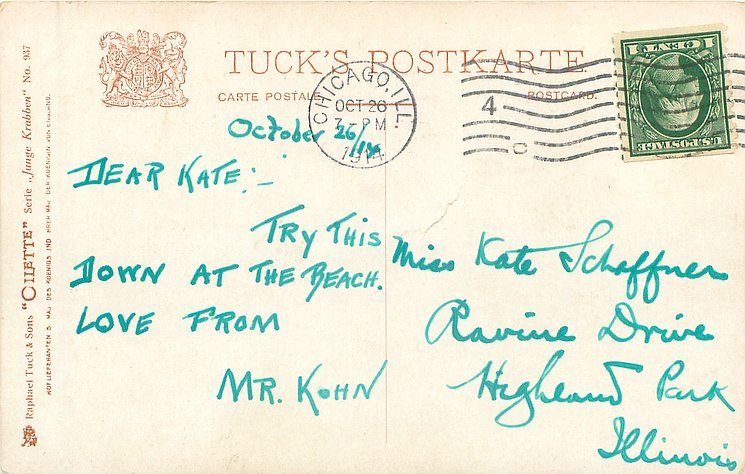 TUCK'S POSTKARTE
CARTE POSTALE
POSTCARD.
CHICAGO, ILL.
OCT 26
7-PM
1914
4
C
1 CENT 1
U.S. POSTAGE
October 26/14
DEAR KATE:-
TRY THIS
DOWN AT THE BEACH.
LOVE FROM
MR. KOHN
Miss Kate Schaffner
Ravine Drive
Highland Park
Illinois
Raphael Tuck & Sons "OILETTE" Serie „Junge Krabben" No. 937
HOFLIEFERANTEN S. MAJ. DES KOENIGS UND IHRER MAJ. DER KOENIGIN VON ENGLAND.